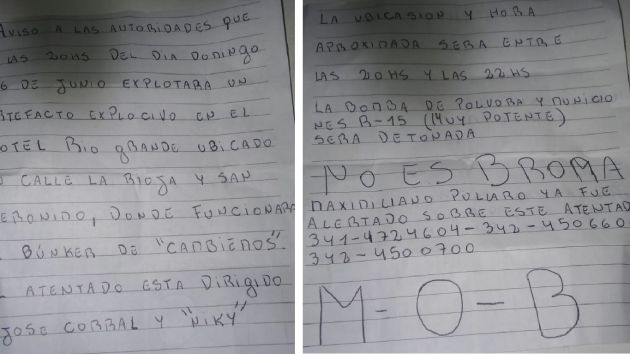 AVISO A LAS AUTORIDADES QUE
LAS 20HS DEL DIA DOMINGO
6 DE JUNIO EXPLOTARA UN
TEFACTO EXPLOCIVO EN EL
OTEL RIO GRANDE UBICADO
CALLE LA RIOJA Y SAN
ERONIMO, DONDE FUNCIONARA
BÚNKER DE "CAMBIEMOS".
ATENTADO ESTA DIRIGIDO
JOSE CORRAL Y "NIKY"
LA UBICASION Y HORA
APROXIMADA SERA ENTRE
LAS 20HS Y LAS 22HS
LA BOMBA DE POLVORA Y MUNICIO
NES R-15 (MUY POTENTE)
SERA DETONADA
NO ES BROMA
MAXIMILIANO PULLARO YA FUE
ALERTADO SOBRE ESTE ATENTAD
341-4724604-342-450660
342-4500700
M-O-B